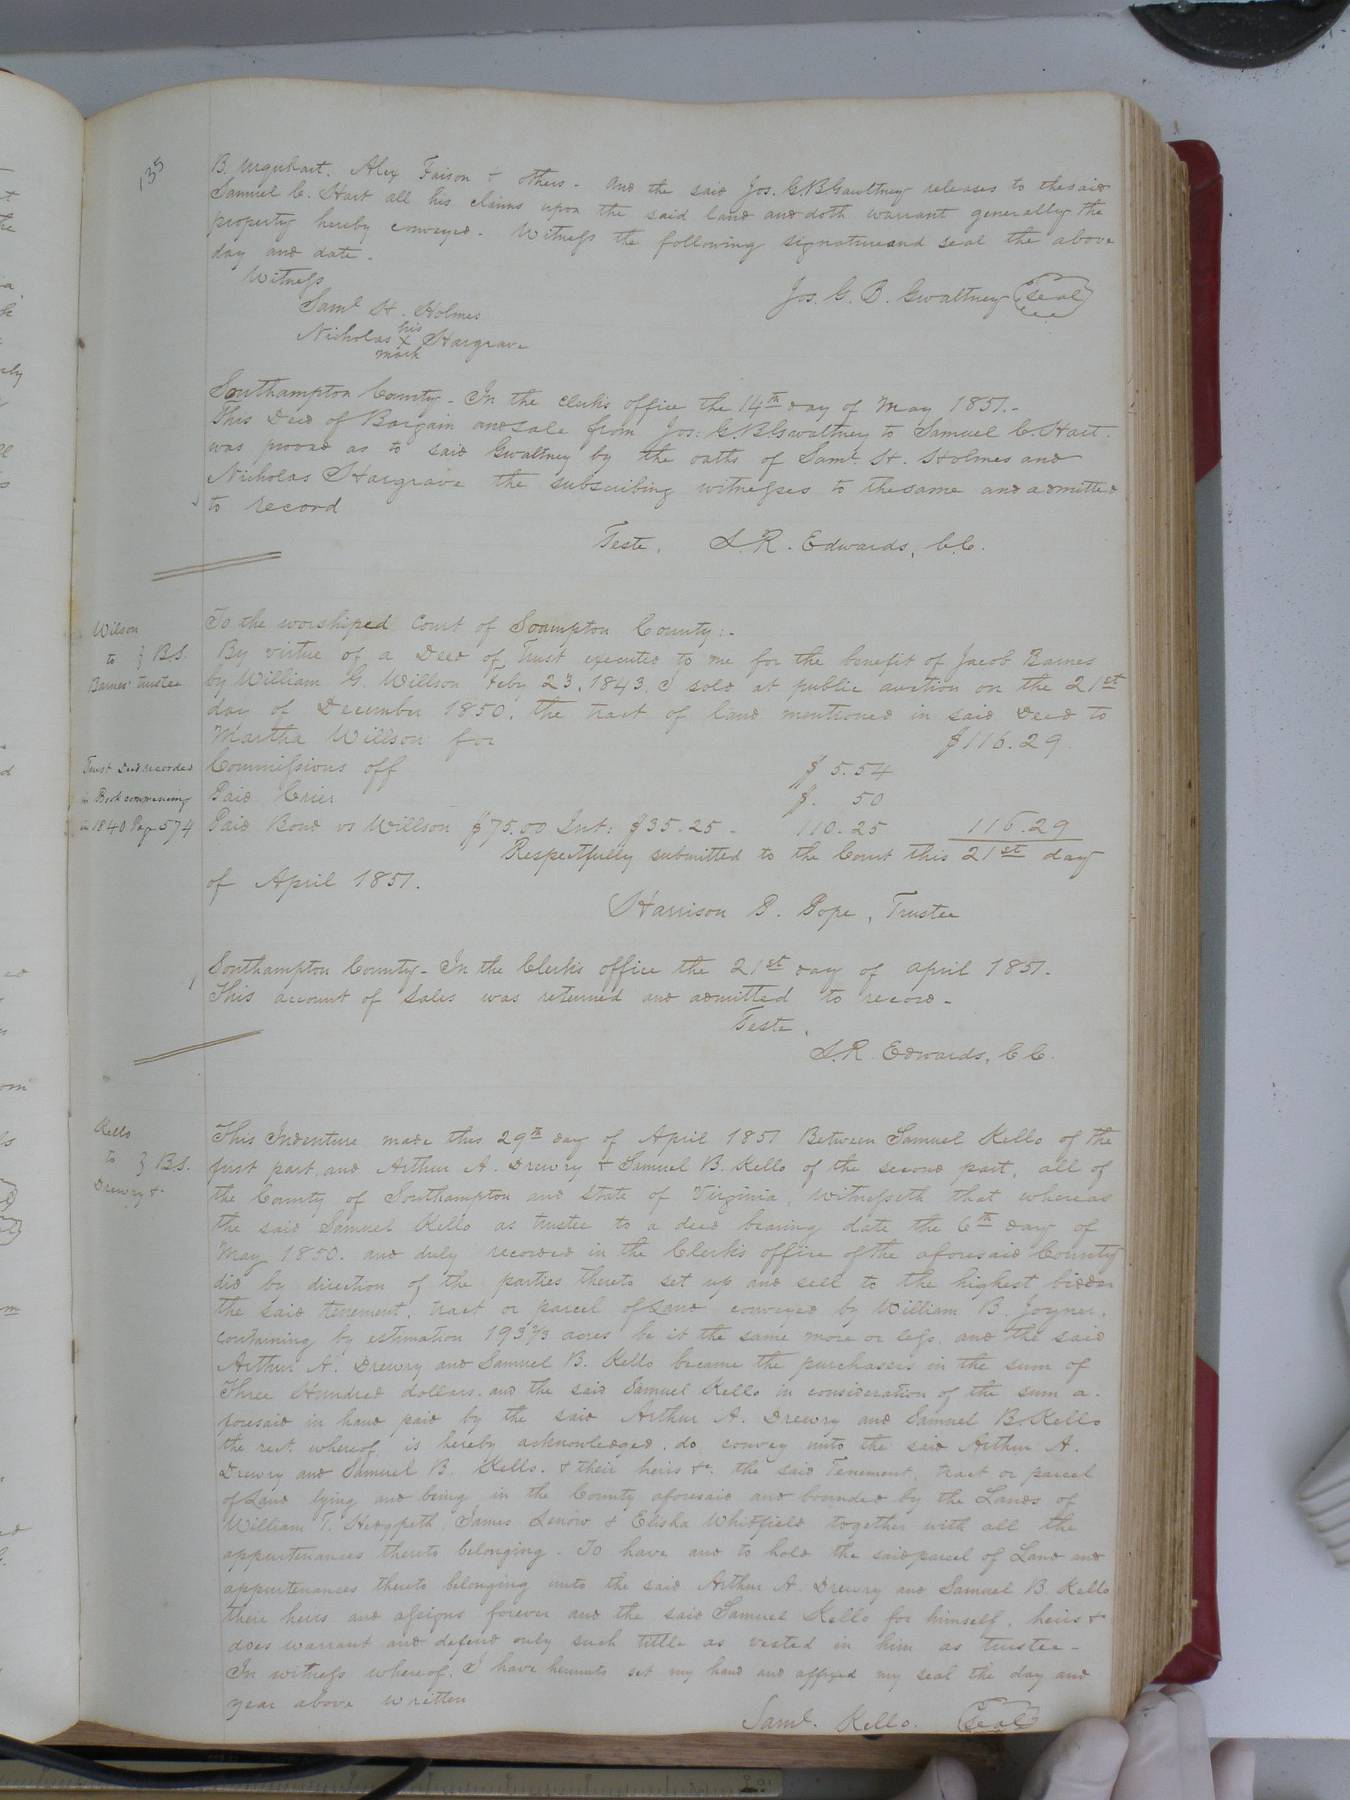 135
B. Urquhart. Alex Faison & others - and the said Jos. G. B Gwaltney releases to the said
Samuel C. Hart all his claims upon the said land and doth warrant generally the
property hereby conveyed. Witness the following signature and seal the above
day and date.
Witness
Jos. G. B. Gwaltney (seal)
Saml H. Holmes
his
Nicholas X Hargrave
mark
Southampton County - In the clerk's office the 14th day of May 1851.-
This Deed of Bargain and sale from Jos: G. B Gwaltney to Samuel C. Hart.
was proved as to said Gwaltney by the oaths of Saml. H. Holmes and
Nicholas Hargrave the subscribing witnesses to the same and admitted
to record
Teste, L. R. Edwards, C.C.
Wilson
to } B.S.
Barnes' trustee
Trust Deed recorded
in Book commencing
in 1840 Page 574
To the worshiped Court of Soampton County:-
By virtue of a Deed of Trust executed to me for the benefit of Jacob Barnes
by William G. Willson Feby 23, 1843, I sold at public auction on the 21st
day of December 1850, the tract of land mentioned in said Deed to
Martha Willson for $116.29
Commissions off $5.54
Paid Crier $. 50
Paid Bond vs Willson $75.00 Int: $35.25 - 110.25 116.29
Respectfully submitted to the Court this 21st day
of April 1851.
Harrison P. Pope, Trustee
Southampton County - In the Clerk's office the 21st day of april 1851.
This account of sales was returned and admitted to record -
Teste,
L. R. Edwards, C C.
Kello
to } B.S.
Drewry &
This Indenture made this 29th day of April 1851 Between Samuel Kello of the
first part, and Arthur A. Drewry & Samuel B. Kello of the second part, all of
the County of Southampton and State of Virginia, Witnesseth that whereas
the said Samuel Kello as trustee to a deed bearing date the 6th day of
May 1850. and duly recorded in the Clerk's office of the aforesaid County
did by direction of the parties thereto set up and sell to the highest bidder
the said tenement, tract or parcel of Land conveyed by William B. Joyner,
containing by estimation 193 2/3 acres be it the same more or less, and the said
Arthur A. Drewry and Samuel B. Kello became the purchasers in the sum of
Three Hundred dollars. and the said Samuel Kello in consideration of the sum a-
foresaid in hand paid by the said Arthur A. Drewry and Samuel B. Kello
the rect. whereof is hereby acknowledged, do convey unto the said Arthur A.
Drewry and Samuel B. Kello. & their heirs &c. the said Tenement, tract or parcel
of Land lying and being in the County aforesaid and bounded by the Lands of
William T. Hedgpeth, James Lenow & Elisha Whitfield together with all the
appurtenances thereto belonging. To have and to hold the said parcel of Land and
appurtenances thereto belonging unto the said Arthur A. Drewry and Samuel B. Kello
there heirs and assigns forever and the said Samuel Kello for himself, heirs &
does warrant and defend only such tittle as vested in him as trustee -
In witness whereof, I have hereunto set my hand and affixed my seal the day and
year above written
Saml. Kello. (seal)